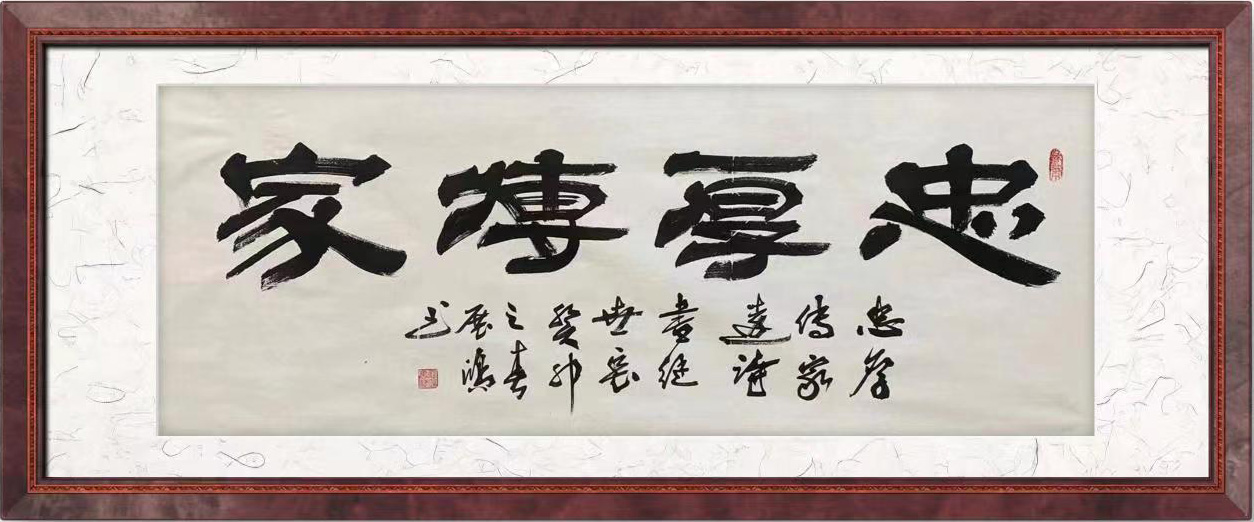 忠厚傳家
忠厚
傳家
遠詩
書继
世長
癸卯
之春